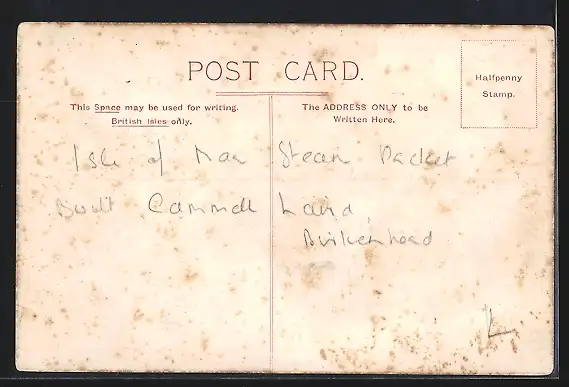 POST CARD.
This Space may be used for writing.
British Isles only.
The ADDRESS ONLY to be
Written Here.
Halfpenny
Stamp.
Isle of Man Steam Packet
Built Cammell Laird
Birkenhead
L